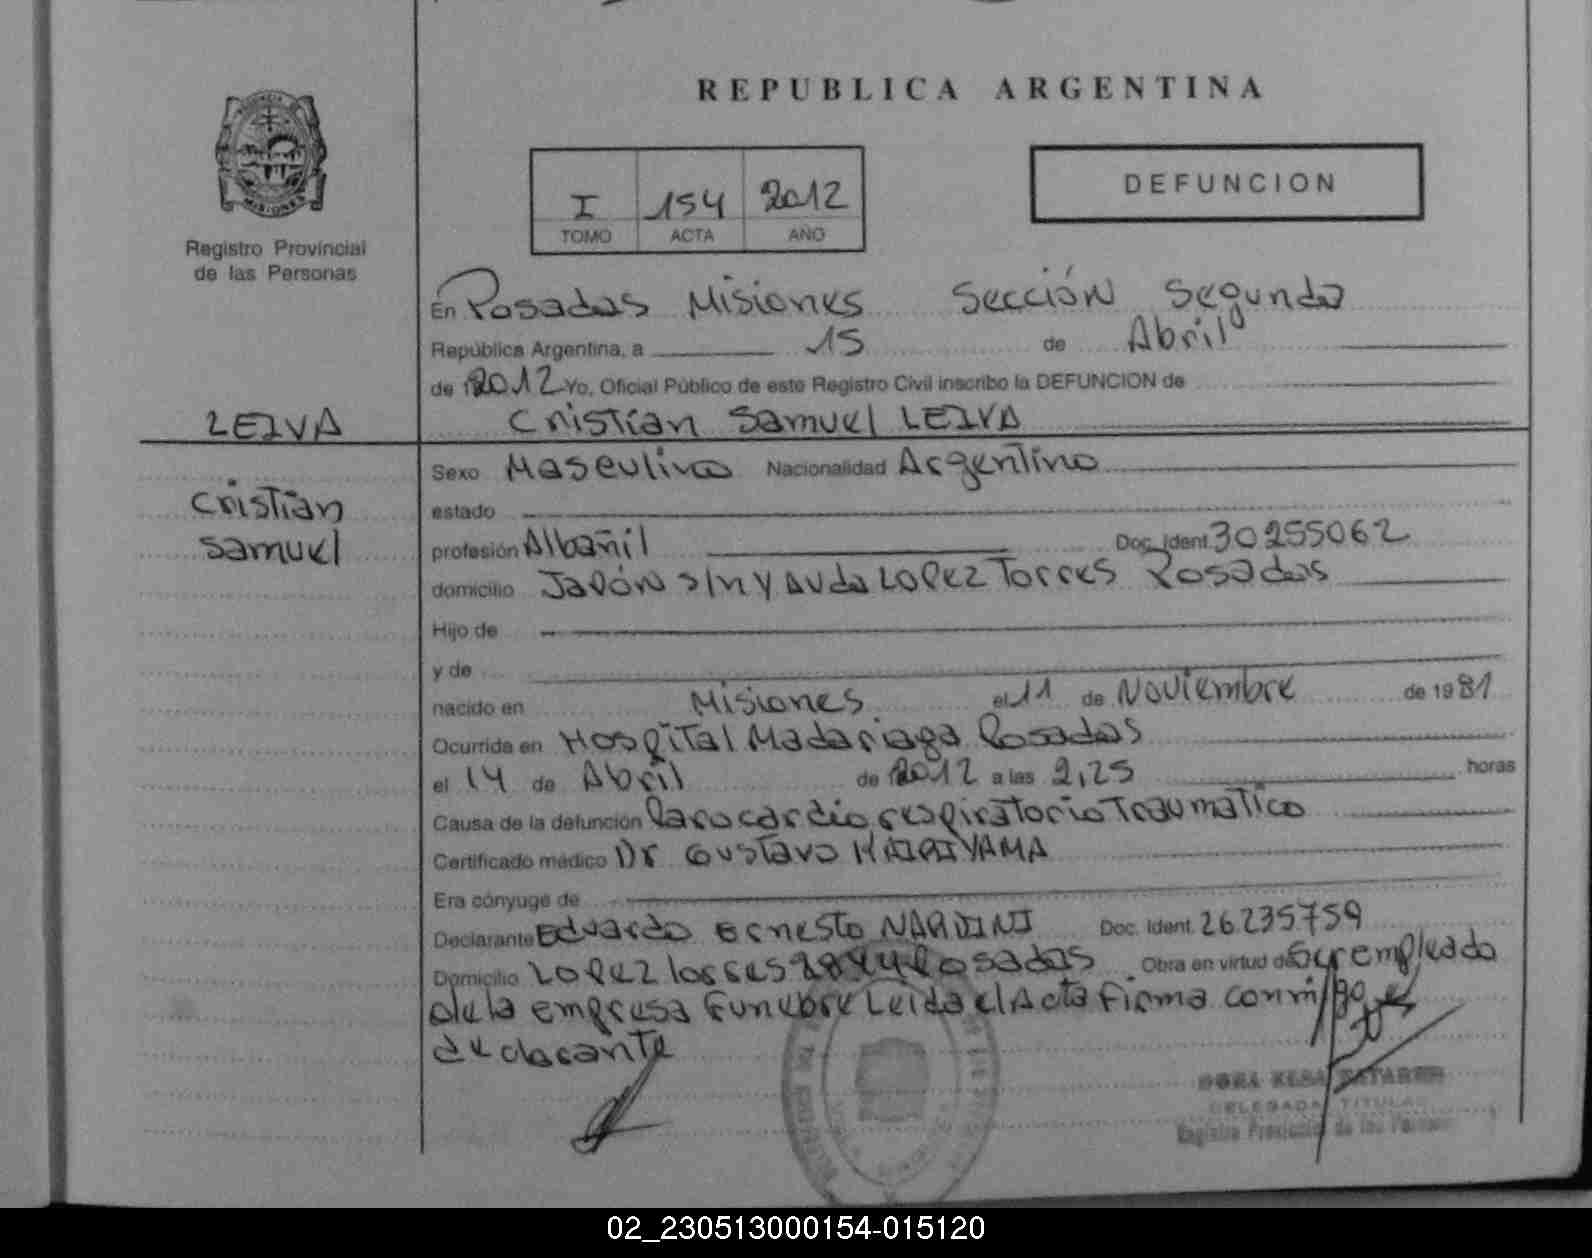 REPUBLICA ARGENTINA
MISIONES
Registro Provincial
de las Personas
I 154 2012
TOMO ACTA AÑO
DEFUNCION
En Posadas Misiones Sección Segunda
República Argentina, a 15 de Abril
de 2012 Yo, Oficial Público de este Registro Civil inscribo la DEFUNCION de
LEIVA
Cristian Samuel LEIVA
Cristian
Samuel
Sexo Masculino Nacionalidad Argentino
estado
profesión Albañil Doc. Ident. 30255062
domicilio Japón s/n y Avda Lopez Torres Posadas
Hijo de
y de
nacido en Misiones el 11 de Noviembre de 1981
Ocurrida en Hospital Madariaga Posadas
el 14 de Abril de 2012 a las 2,25 horas
Causa de la defunción Paro cardio respiratorio Traumatico
Certificado médico Dr Gustavo
Era cónyuge de
Declarante Eduardo Ernesto NARDINI Doc. Ident. 26235759
Domicilio Lopez Torres Posadas Obra en virtud de Ser empleado
de la empresa Funebre Leida el Acta Firma conmigo el
declarante
DELEGADA TITULAR
Registro Provincial de las Personas
02_230513000154-015120